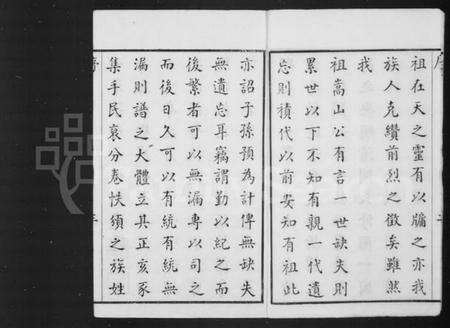 序
祖在天之靈有以牖之亦我
族人克纘前烈之徵矣雖然
我
祖嵩山公有言一世缺失則
累世以下不知有親一代遺
忘則積代以前安知有祖此
亦詔子孫預為計俾無缺失
無遺忘耳竊謂勤以紀之而
後繁者可以無漏專以司之
而後日久可以有統有統無
漏則譜之大體立其正亥豕
集手民裒分卷帙頒之族姓
序